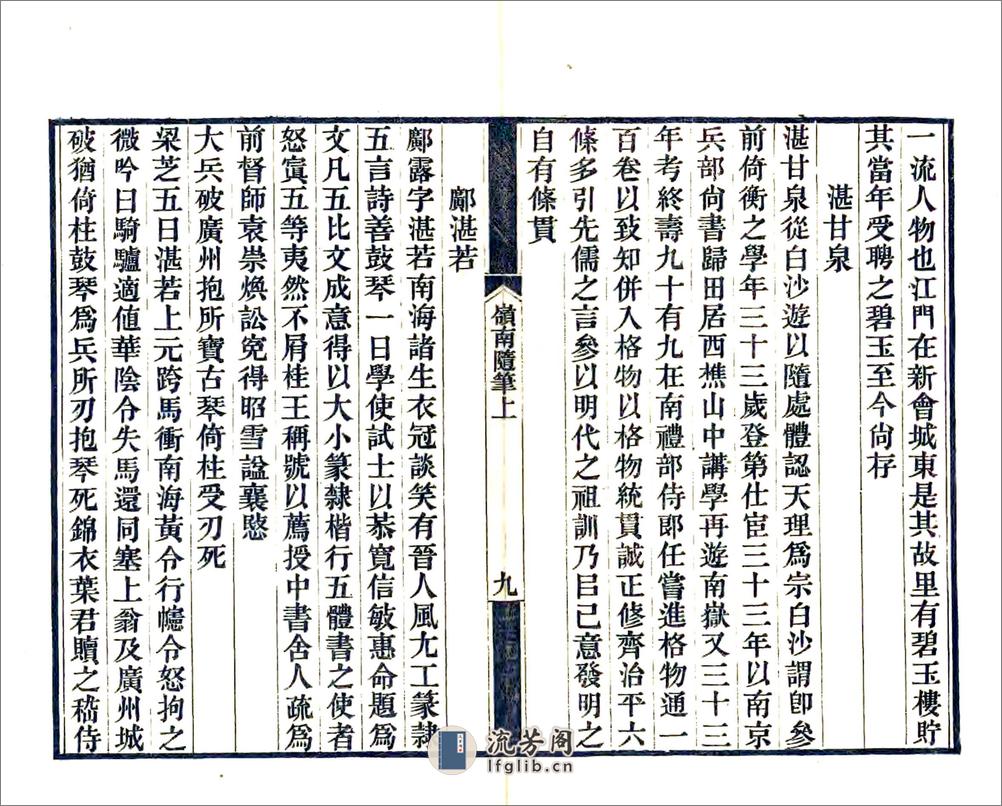 一流人物也江門在新會城東是其故里有碧玉樓貯
其當年受聘之碧玉至今尙存
湛甘泉
湛甘泉從白沙遊以隨處體認天理爲宗白沙謂卽參
前倚衡之學年三十三歲登第仕宦三十三年以南京
兵部尙書歸田居西樵山中講學再遊南嶽又三十三
年考終壽九十有九在南禮部侍郎任嘗進格物通一
百卷以致知併入格物以格物統貫誠正修齊治平六
條多引先儒之言參以明代之祖訓乃㠯己意發明之
自有條貫
嶺南隨筆上
九
鄺湛若
鄺露字湛若南海諸生衣冠談笑有晉人風尤工篆隸
五言詩善鼓琴一日學使試士以恭寬信敏惠命題爲
文凡五比文成意得以大小篆隸楷行五體書之使者
怒寘五等夷然不屑桂王稱號以薦授中書舍人疏爲
前督師袁崇煥訟寃得昭雪諡襄愍
大兵破廣州抱所寶古琴倚柱受刃死
梁芝五曰湛若上元跨馬衝南海黃令行幰令怒拘之
微吟曰騎驢適値華陰令失馬還同塞上翁及廣州城
破猶倚柱鼓琴爲兵所刃抱琴死錦衣葉君贖之嵇侍
流芳阁
lfglib.cn